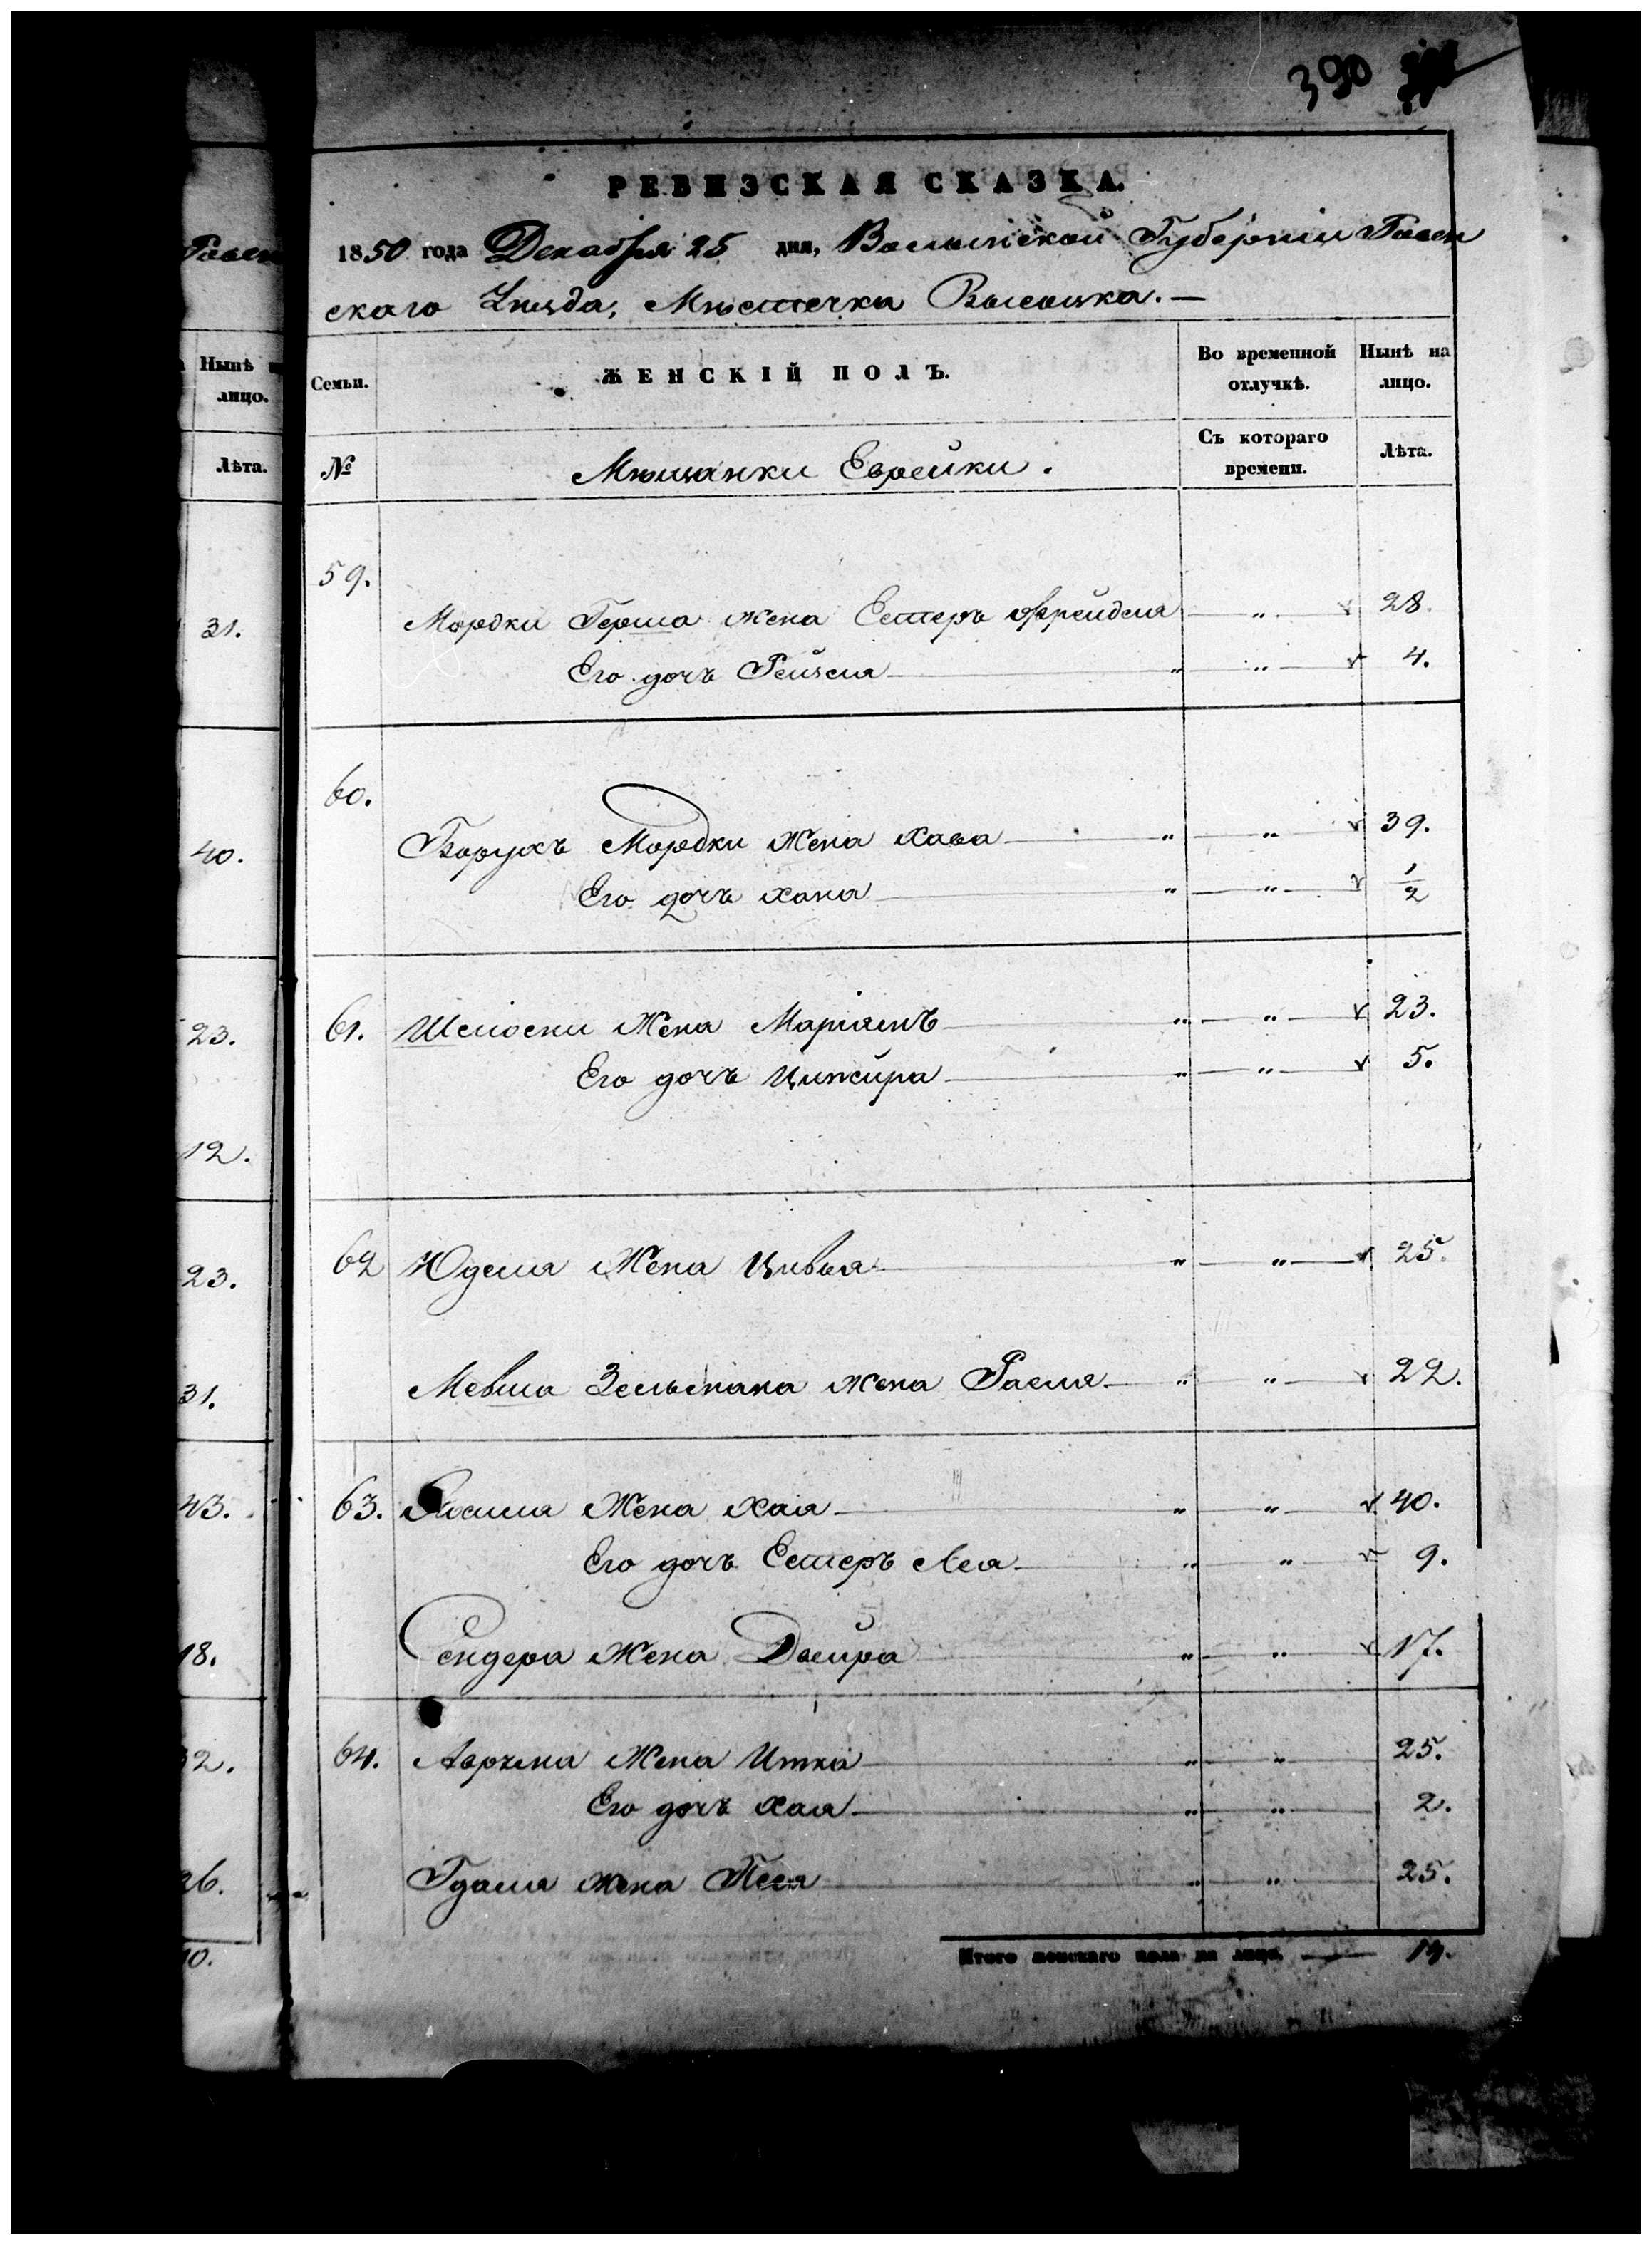 390
РЕВИЗСКАЯ СКАЗКА.
1850 года Декабря 25 дня, Волынской Губерніи Ровен
скаго Уѣзда, Мѣстечка Высоцка. —
Семьи.
ЖЕНСКІЙ ПОЛЪ.
Во временной отлучкѣ.
Нынѣ на лицо.
№
Мѣщанки Еврейки.
Съ котораго времени.
Лѣта.
59.
Мордки Герша жена Естеръ Фрейдля — " — v 28.
Его дочъ Рейзля — " — " — v 4.
60.
Борухъ Мордки жена Хава — " — " — v 39.
Его дочъ Хана — " — " — v 1/2
61. Шліомки Жена Маріямъ — " — " — v 23.
Его дочъ Ципойра — " — " — v 5.
62 Юделя Жена Цивья — " — " — v 25.
Мевша Зельмана жена Раеля — " " — v 22.
63. Жена Хая — " — " — v 40.
Его дочъ Естеръ Лея — " " — v 9.
Сендера жена Двейра " — " — v 17.
64. Аврума Жена Итка — " — " — 25.
Его дочъ Хая — " — " — 2.
Гдаля жена Песя — " — " — 25.
Итого женскаго пола на лицо, — 14.
Ровен
Нынѣ на
лицо.
Лѣта.
31.
40.
23.
12.
23.
31.
43.
18.
32.
26.
10.